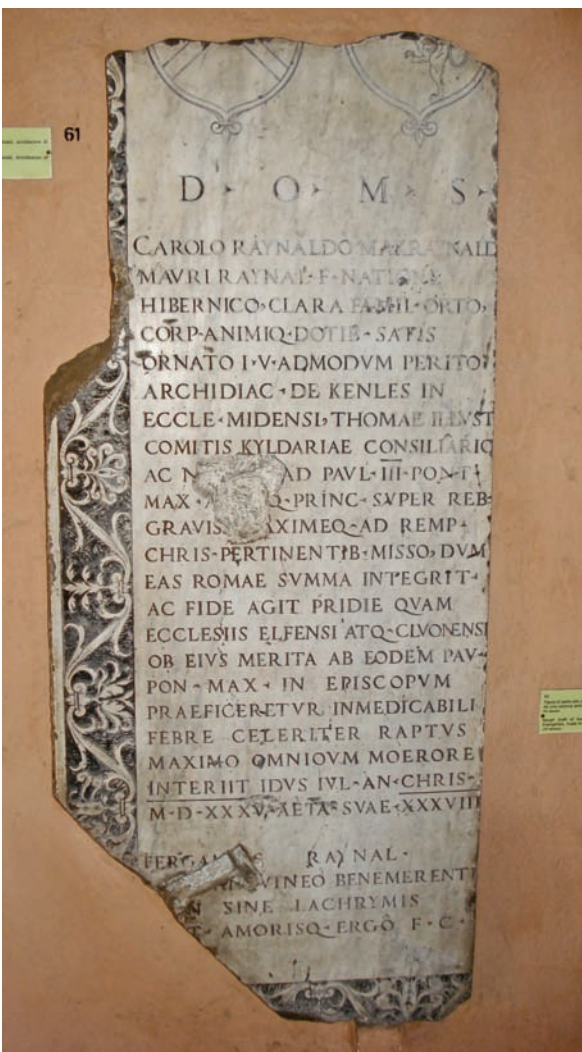 61
D · O · M · S ·
CAROLO RAYNALDO MAKRAYNALD
MAVRI RAYNAL·F·NATIONE
HIBERNICO, CLARA FAMIL·ORTO,
CORP·ANIMIQ·DOTIB·SATIS
ORNATO I·V·ADMODVM PERITO,
ARCHIDIAC·DE KENLES IN
ECCLE·MIDENSI, THOMAE ILLVST
COMITIS KYLDARIAE CONSILIARIO
AC AD PAVL·III·PONT·
MAX· PRINC·SVPER REB·
GRAVIS AXIMEQ·AD REMP·
CHRIS·PERTINENTIB·MISSO, DVM
EAS ROMAE SVMMA INTEGRIT·
AC FIDE AGIT PRIDIE QVAM
ECCLESIIS ELFENSI ATQ·CLVONENSI
OB EIVS MERITA AB EODEM PAV·
PON·MAX·IN EPISCOPVM
PRAEFICERETVR, INMEDICABILI
FEBRE CELERITER RAPTVS
MAXIMO OMNIOVM MOERORE
INTERIIT IDVS IVL·AN·CHRIS·
M·D·XXXV, AETA·SVAE·XXXVIII
RAYNAL·
VINEO BENEMERENTI
SINE LACHRYMIS
AMORISQ·ERGO F·C·